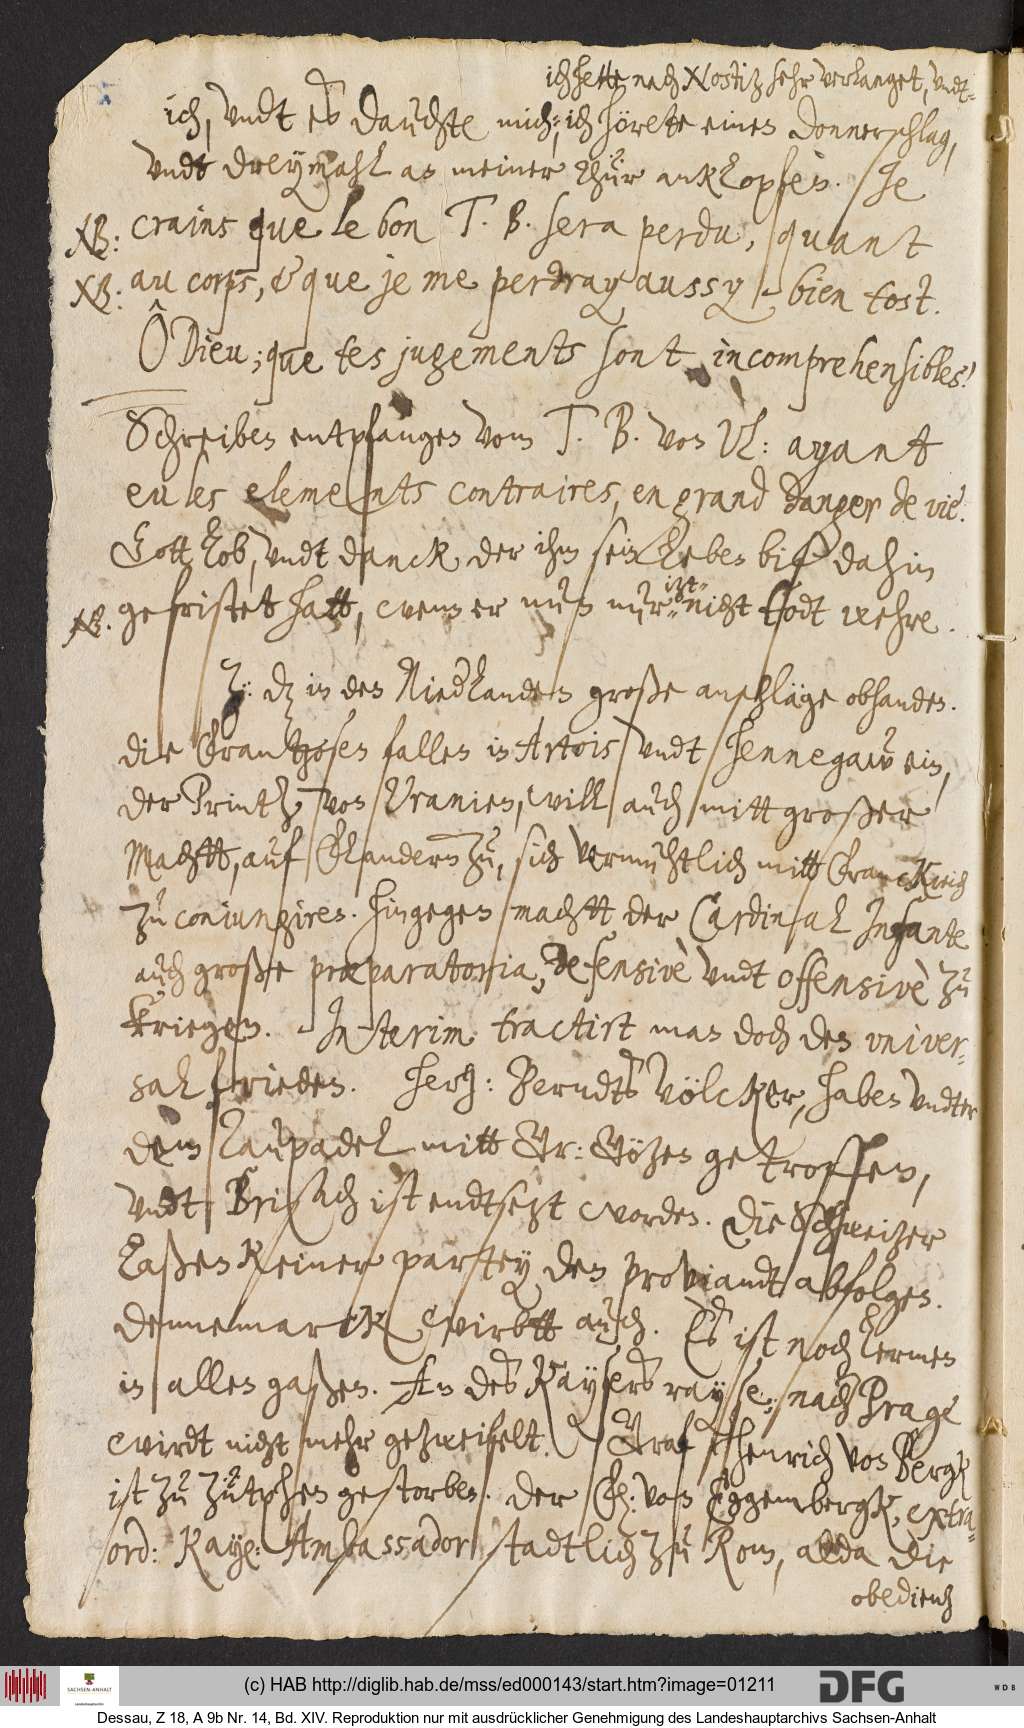 ich hette nach Nostitz sehr verlanget, vndt
ich, vndt es dauchte mich, ich hörete einen Donnerschlag,
vndt dreymahl an meiner thür anklopfen. Je
NB: crains que le bon T. B. sera perdu, quant
NB: au corps, & que je me perdray aussy bien tost.
Ô Dieu; que tes jugements sont incomprehensibles!
Schreiben entpfangen vom T. B. von Vl: ayant
eu les elements contraires, en grand danger de vie.
Gott lob, vndt danck der ihm sein leben biß dahin
NB. gefristet hatt, wenn er nun nur itzt nicht todt wehre.
Z: dz in den Niederlanden große anschläge obhanden.
die Frantzosen fallen in Artois vndt Hennegaw ein,
der Printz von Vranien, will auch mitt großer
Machtt, auf Flandern zu, sich vermuhtlich mitt Franckreich
zu coniungiren. Hingegen machtt der Cardinal Infante
auch große præparatoria, defensivè vndt offensivè zu
kriegen. Interim tractirt man doch den vniver-
sal frieden. Hertz: Berndts völcker, haben vndter
dem Taupadel mitt Gr: Götzen getroffen,
vndt Brisach ist endtsetzt worden. Die Schweitzer
laßen keiner partey den proviandt abfolgen.
Dennemarck wirbtt auch. Es ist noch lermen
in allen gaßen. An des Kaysers rayse, nach Prage
wirdt nicht mehr gezweifelt. Graf Henrich von Bergk
ist zu Zütphen gestorben. Der F: von Eggembergk, extra-
ord: Kays: Ambassador stadtlich zu Rom, allda die
obedientz
(c) HAB http://diglib.hab.de/mss/ed000143/start.htm?image=01211
SACHSEN-ANHALT
DFG
WDB
Dessau, Z 18, A 9b Nr. 14, Bd. XIV. Reproduktion nur mit ausdrücklicher Genehmigung des Landeshauptarchivs Sachsen-Anhalt